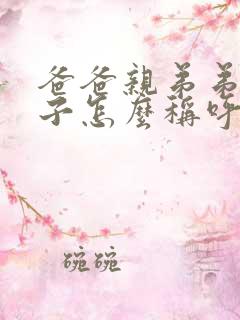 爸爸親弟弟
子怎麼稱呼
碗碗